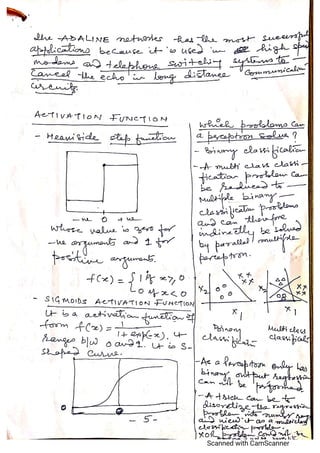 The ADALINE networks has the most successful
applications because it is used in high speed
modems and telephone switching systems to
cancel the echo in long distance communication
circuits.
ACTIVATION FUNCTION
- Heaviside step function
-ve 0 +ve
whose value is zero for
-ve arguments and 1 for
positive arguments.
f(x) = { 1 if x ≥ 0
0 if x < 0
- SIGMOIDS ACTIVATION FUNCTION
It is a activation function of
form f(x) = 1 / 1 + exp(-x). It
ranges b/w 0 and 1. It is S-
shaped curve.
0
Which problems can
a perceptron solve?
- Binary classification
- A multi class classi-
fication problem can
be reduced to
multiple binary
classification problems
and can therefore
indirectly be solved
by parallel/multiple
perceptron.
x2
x1
x1
Binary
classificatn
Multi class
classificatn
- As a perceptron only has
binary output regression
can not be performed
- A trick can be to
discretize the regression
problem into
and view it as a multiclass
classification problem.
XOR could not
- 5 -
Scanned with CamScanner